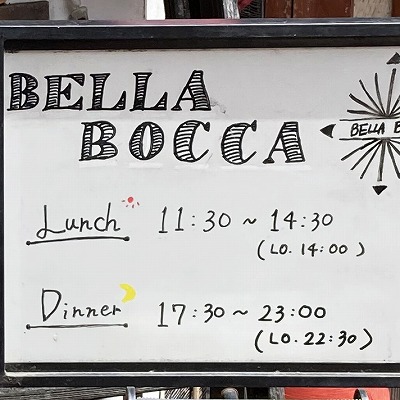 BELLA
BOCCA
BELLA B
Lunch 11:30 ~ 14:30
(LO. 14:00)
Dinner 17:30 ~ 23:00
(LO. 22:30)